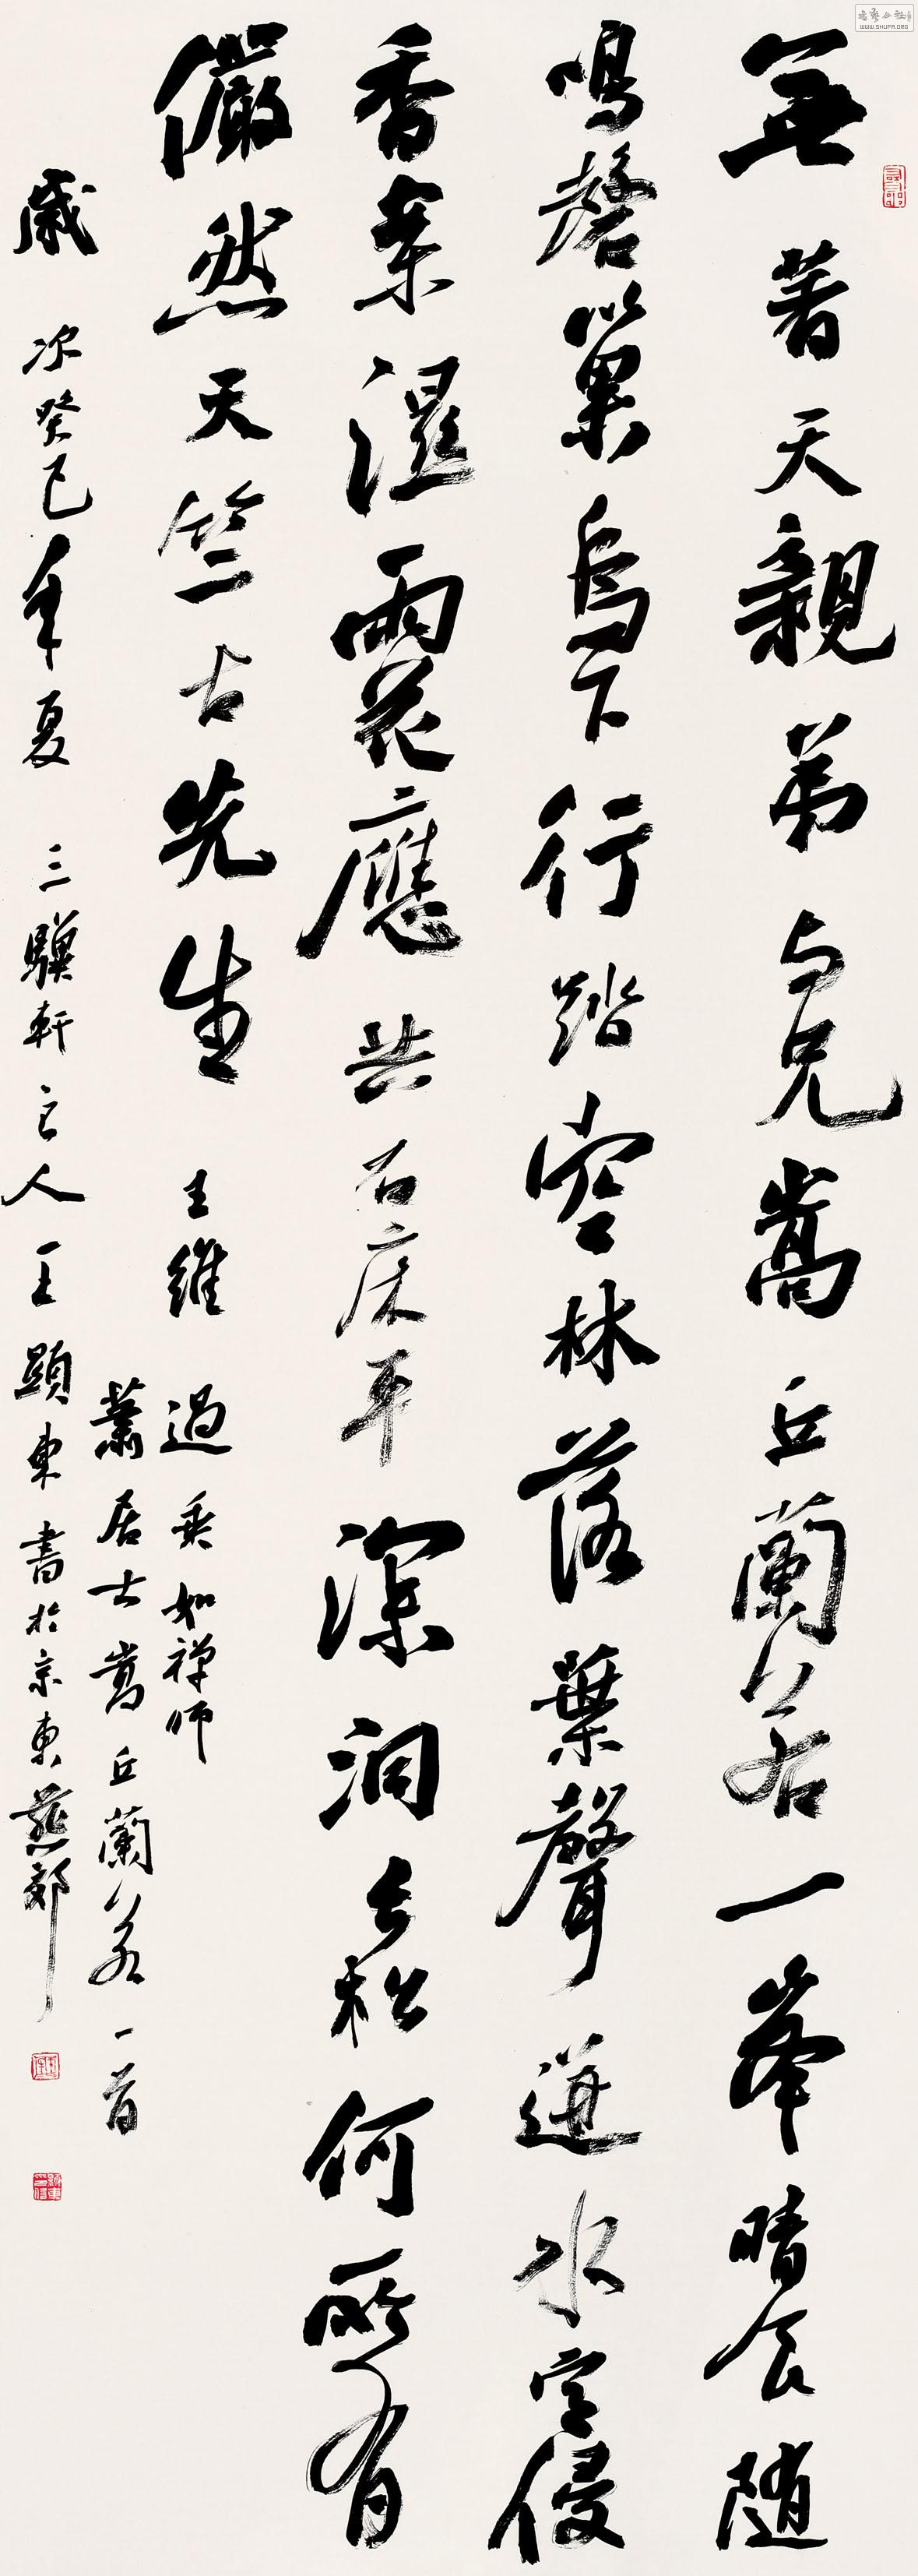 無著天親弟与兄嵩丘蘭若一峯晴食随
鳴磬巢烏下行踏空林落葉聲迸水定侵
香案濕雨花應共石床平深洞長松何所有
儼然天竺古先生 王維 過乘如禅师
蕭居士嵩丘蘭若一首
歲次癸巳年夏 三軒主人王顯東書於京東燕郊
WWW.SHUFA.ORG